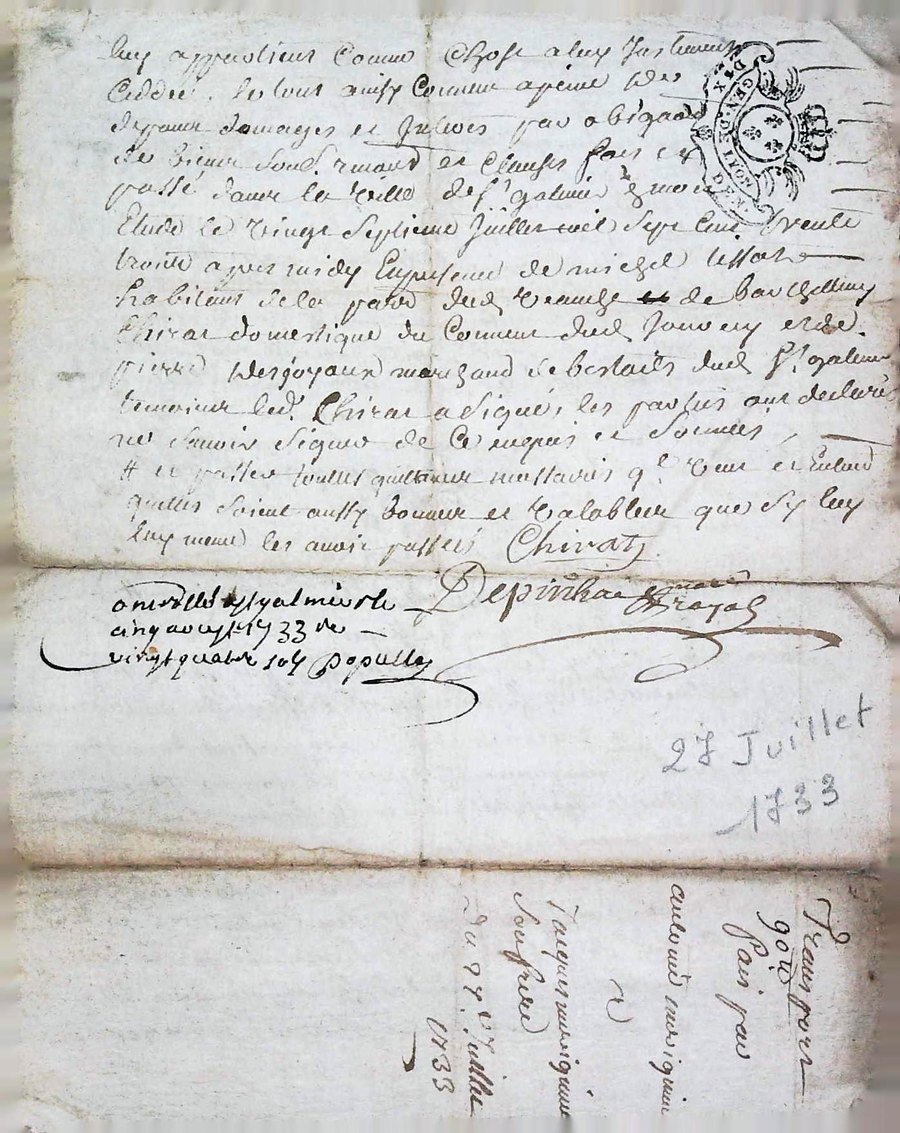 luy appartient Comme Chose a luy Justement
Ceddée. le tout ainsy Convenu a peine de
depans domages et Interes par obligaon
de biens Soubs. et Clauses fait et
passé dans la Ville de St galmier &
Etude le Vingt Septieme Juillet mil Sept Cent trente
trois apres midy En presence de michel
habitant de la parr dud et de barthellemy
Chirat domestique du dud et de
pierre Desjoyaux marchand de bestails dud St galmier
temoins led. Chirat a Signé, les parties ont declaré
ne Savoir Signer de Ce enquis et Sommés
# et passer toutes quittances necessaires ql. Veut et Entend
quelles soient aussy bonnes et Valables que Sy luy
luy meme les avoit passés Chirat
Depinhac
st galmier le
cinq aoust 1733 Re
vingt quatre sols Populle
GEN. DE LION
27 Juillet
1733
Transport
fait par
antoine
a
Jacques
Son frere
Du 27e. Juillet
1733